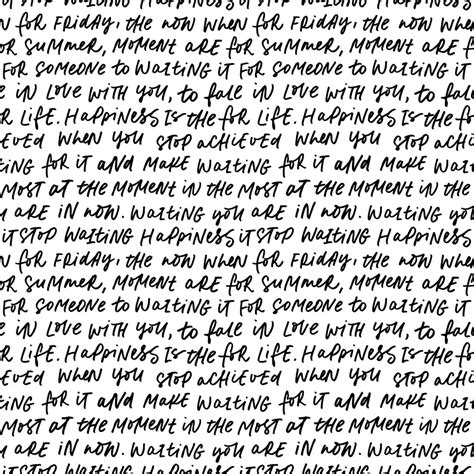 STOP WAITING HAPPINESS it STOP WAITING HAPPINESS it
for FRiDAY, tHE NOW WHEN for FRiDAY, tHE NOW WHEN for
for SUMMER, MOMENT ARE for SUMMER, MOMENT ARE
FOR SOMEONE to WAITING it FOR SOMEONE to WAITING it
IN LOVE WITH YOU, to fall IN LOVE WITH YOU, to fall
for LiFE. HAPPINESS IS tHE for LiFE. HAPPINESS IS tHE
WHEN YOU STOP ACHIEVED WHEN YOU STOP
for it AND MAKE WAITING for it AND MAKE WAITING
MOST At tHE MOMENT IN tHE MOST At tHE MOMENT IN tHE
ARE IN NOW. WAITING YOU ARE IN NOW. WAITING YOU
it STOP WAITING HAPPINESS it STOP WAITING HAPPINESS
for FRiDAY, tHE NOW WHEN for FRiDAY, tHE NOW WHEN for
for SUMMER, MOMENT ARE for SUMMER, MOMENT ARE
FOR SOMEONE to WAITING it FOR SOMEONE to WAITING it
IN LOVE WITH YOU, to fall IN LOVE WITH YOU, to fall
for LiFE. HAPPINESS IS tHE for LiFE. HAPPINESS IS tHE
WHEN YOU STOP ACHIEVED WHEN YOU STOP
for it AND MAKE WAITING for it AND MAKE WAITING
MOST At tHE MOMENT IN tHE MOST At tHE MOMENT IN tHE
ARE IN NOW. WAITING YOU ARE IN NOW. WAITING YOU
it STOP WAITING HAPPINESS it STOP WAITING HAPPINESS